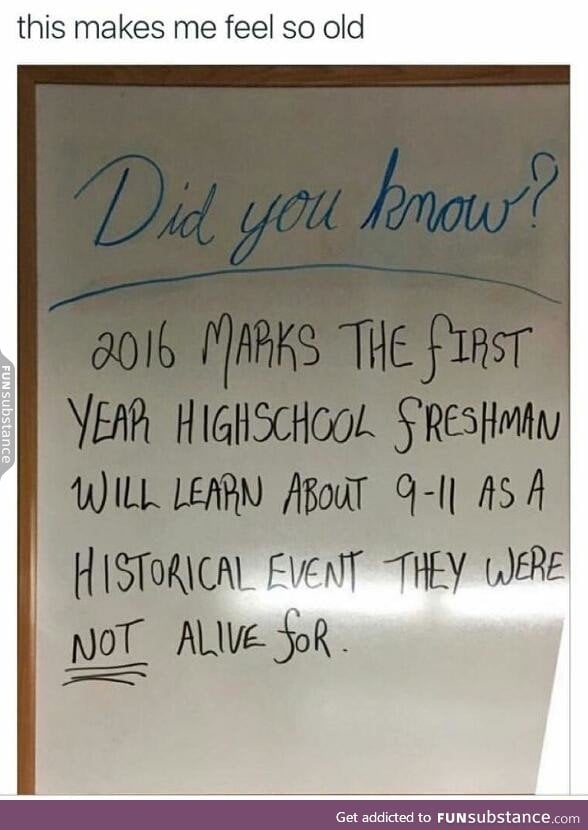 this makes me feel so old
Did you know?
2016 MARKS THE FIRST
YEAR HIGHSCHOOL FRESHMAN
WILL LEARN ABOUT 9-11 AS A
HISTORICAL EVENT THEY WERE
NOT ALIVE FOR.
FUNsubstance
Get addicted to FUNsubstance.com